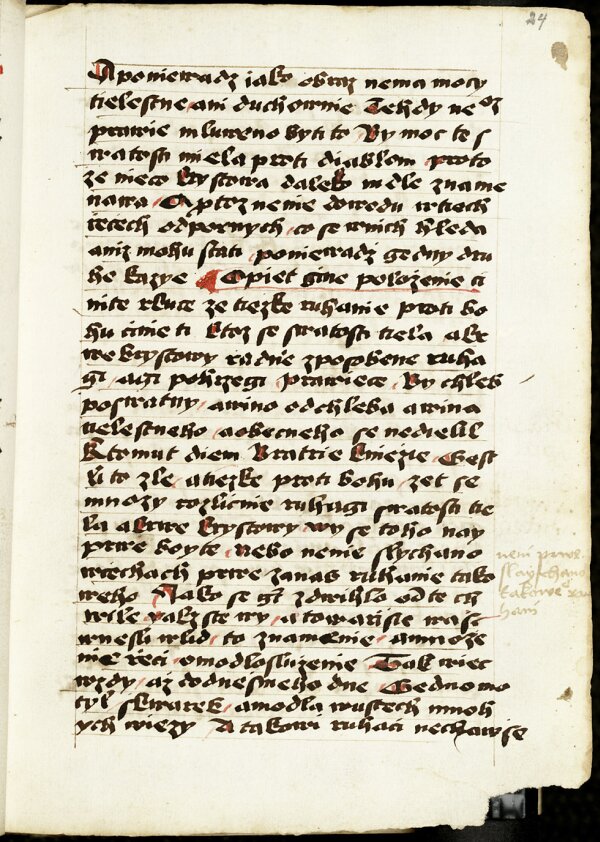 24
A poniewadz iako obraz nema moczy
tielestne ani duchownie Tehdy ne oz
prawie mluweno byti to By moc te s
watosti miela proti diablom proto
ze nieco krystowa daleko mdle zname
nawa A ptoz nenie dowodu w tiech
rzecech odpornych co se w nich hleda
aniz mohu stati poniewadz gedny dru
he kazye Opiet gine polozenie ci
nite rkuce ze tiezke ruhanie proti bo
hu cinie ti ktoz se swatosti tiela a kr
we krystowy radnie zposobene ruha
gi a gi pohrzegi prawiece By chleb
poswatny a wino od chleba a wina
tielestneho a obecneho se nedielil
K tomut diem Bratrie kniezie Gest
li to zle a tiezke proti bohu zet se
mnozy rozlicnie ruhagi swatosti tie
la a krwe krystowy wy se toho nay
prwe boyte nebo nenie slychano
w cechach prwe zanas ruhanie tako
weho Jako se gt zdwihlo od te ch
wile yakz ste wy a towarisie wasi
wnesli w lid to znamenie a mnoze
nie rzeci o modlosluzenie Tak wiec
wzdy az do dnesnieho dne Gedno mo
tyl skwarek a modla w ustech mnoh
ych wiezy A takowi ruhaci nechaw se
neni prwe
slaychano
takowe ru
hani